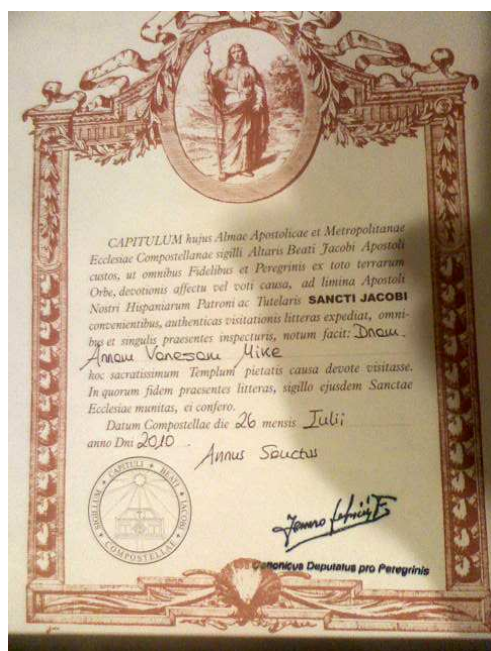 CAPITULUM hujus Almae Apostolicae et Metropolitanae
Ecclesiae Compostellanae sigilli Altaris Beati Jacobi Apostoli
custos, ut omnibus Fidelibus et Peregrinis ex toto terrarum
Orbe, devotionis affectu vel voti causa, ad limina Apostoli
Nostri Hispaniarum Patroni ac Tutelaris SANCTI JACOBI
convenientibus, authenticas visitationis litteras expediat, omni-
bus et singulis praesentes inspecturis, notum facit: Dnam.
Annam Vanesam Mike
hoc sacratissimum Templum pietatis causa devote visitasse.
In quorum fidem praesentes litteras, sigillo ejusdem Sanctae
Ecclesiae munitas, ei confero.
Datum Compostellae die 26 mensis Iulii
anno Dni 2010.
Annus Sanctus
SIGILLUM CAPITULI BEATI JACOBI COMPOSTELLAE
Canonicus Deputatus pro Peregrinis